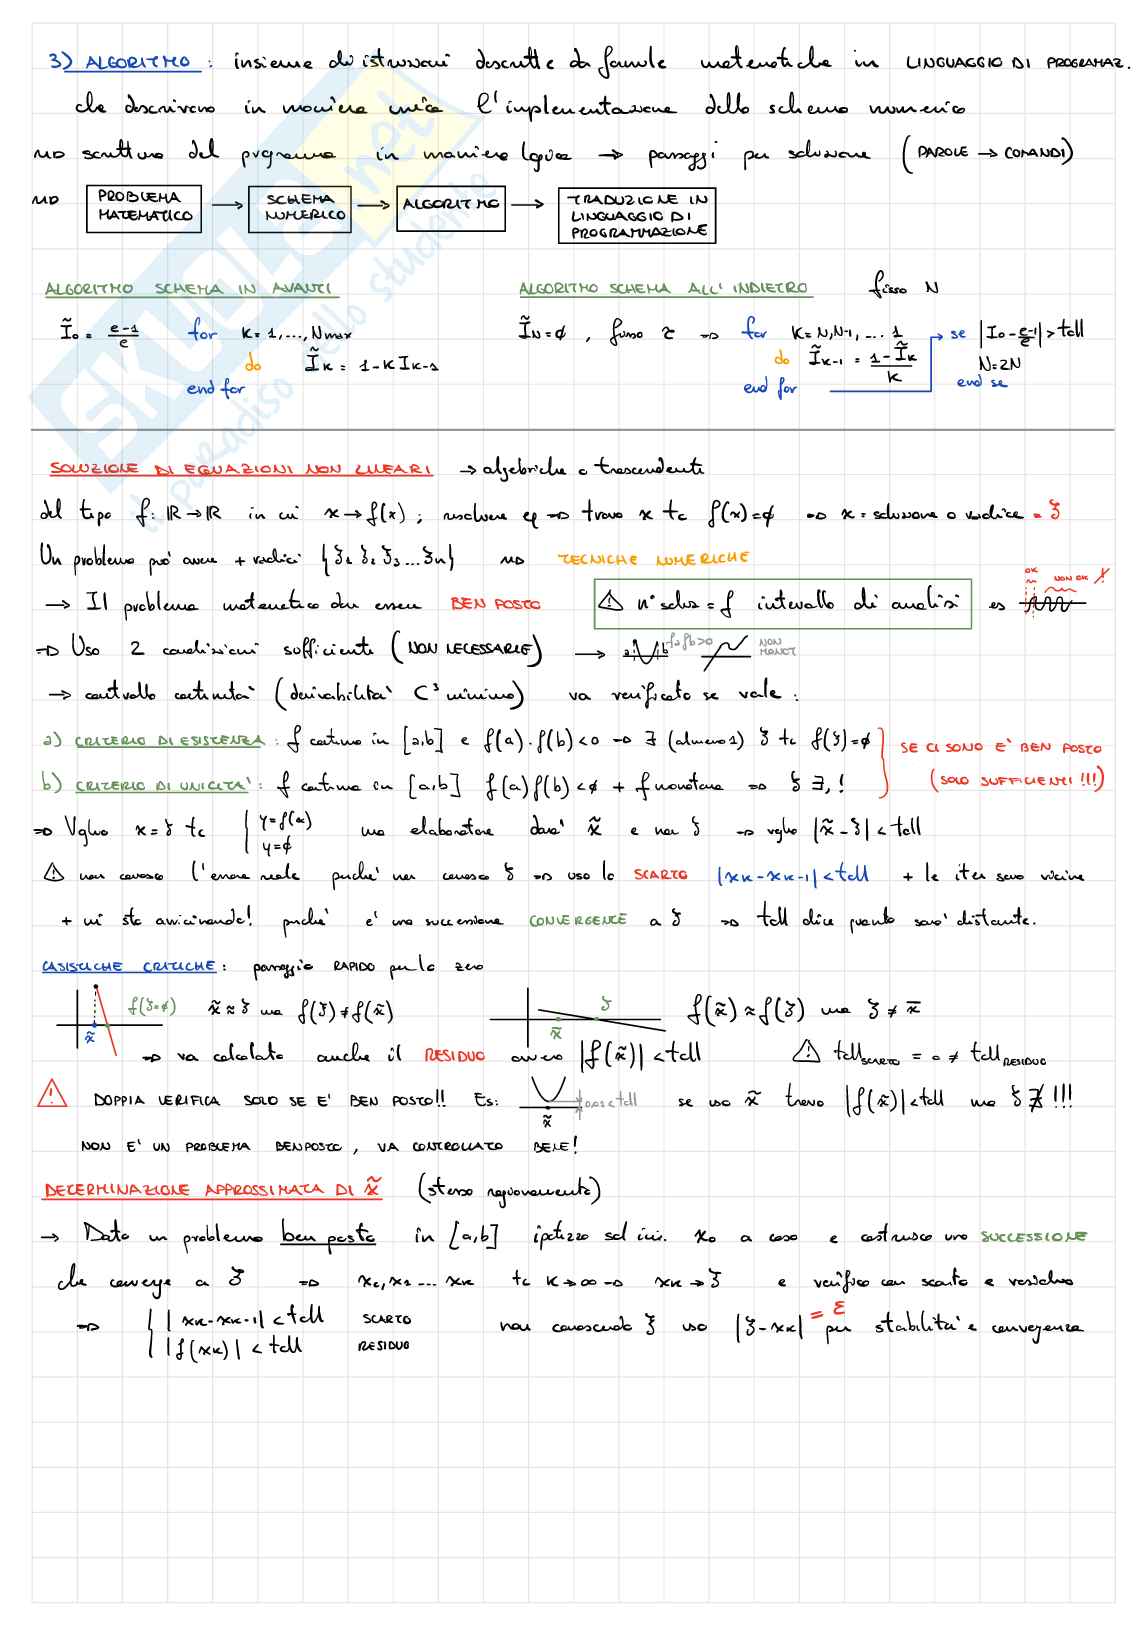 3) ALGORITMO : insieme di istruzioni descritte da formule matematiche in LINGUAGGIO DI PROGRAMAZ.
che descrivono in maniera unica l'implementazione dello schema numerico
⇝ scrittura del programma in maniera logica → passaggi per soluzione (PAROLE → COMANDI)
⇝ PROBLEMA MATEMATICO → SCHEMA NUMERICO → ALGORITMO → TRADUZIONE IN LINGUAGGIO DI PROGRAMMAZIONE
ALGORITMO SCHEMA IN AVANTI
Ĩ₀ = (e-1)/e for K = 1,...,Nmax
do ĨK = 1-K IK-1
end for
ALGORITMO SCHEMA ALL'INDIETRO fisso N
ĨN = ∅ , fisso τ ⇒ for K = N, N-1, ... 1
do ĨK-1 = (1-ĨK)/K
end for
se |I₀ - (e-1)/e| > toll
N = 2N
end se
SOLUZIONE DI EQUAZIONI NON LINEARI → algebriche o trascendenti
del tipo f: ℝ→ℝ in cui x → f(x) ; risolvere eq ⇒ trovo x tc f(x)=∅ ⇒ x = soluzione o radice = ξ
Un problema può avere + radici {ξ₁ ξ₂ ξ₃ ... ξn} ⇝ TECNICHE NUMERICHE
→ Il problema matematico deve essere BEN POSTO
⚠ n° soluz = f intervallo di analisi es OK NON OK !
⇒ Uso 2 condizioni sufficiente (NON NECESSARIE) → a b fa fb>0 NON MONOT
→ controllo continuità (derivabilità C³ minimo) va verificato se vale :
a) CRITERIO DI ESISTENZA : f continua in [a,b] e f(a)·f(b)<0 ⇒ ∃ (almeno 1) ξ tc f(ξ)=∅
b) CRITERIO DI UNICITA' : f continua in [a,b] f(a)f(b)<∅ + f monotona ⇒ ξ ∃,!
SE CI SONO E' BEN POSTO
(SOLO SUFFICIENTI !!!)
⇒ Voglio x=ξ tc { y=f(x) y=∅ ma elaboratore darà x̃ e non ξ ⇒ voglio |x̃-ξ| < toll
⚠ non conosco l'errore reale perché non conosco ξ ⇒ uso lo SCARTO |xK-xK-1|<toll + le iter sono vicine
+ mi sto avvicinando! perché è una successione CONVERGENTE a ξ ⇒ toll dice quanto sarò distante.
CASISTICHE CRITICHE : passaggio RAPIDO per lo zero
f(ξ=∅) x̃ x̃≈ξ ma f(ξ)≠f(x̃)
ξ x̄ f(x̃)≈f(ξ) ma ξ≠x̄
⇒ va calcolato anche il RESIDUO ovvero |f(x̃)|<toll ⚠ toll SCARTO = o ≠ toll RESIDUO
⚠ DOPPIA VERIFICA SOLO SE E' BEN POSTO!! Es: x̃ 0,02<toll se uso x̃ trovo |f(x̃)|<toll ma ξ ∄ !!!
NON E' UN PROBLEMA BENPOSTO, VA CONTROLLATO BENE!
DETERMINAZIONE APPROSSIMATA DI x̃ (stesso ragionamento)
→ Dato un problema ben posto in [a,b] ipotizzo sol iniz. x₀ a caso e costruisco una SUCCESSIONE
che converge a ξ ⇒ x₀, x₁ ... xK tc K→∞ ⇒ xK→ξ e verifico con scarto e residuo
⇒ { |xK-xK-1|<toll SCARTO
|f(xK)| < toll RESIDUO
non conoscendo ξ uso |ξ-xK| = ε per stabilità e convergenza
SKUOLA.net
il paradiso dello studente